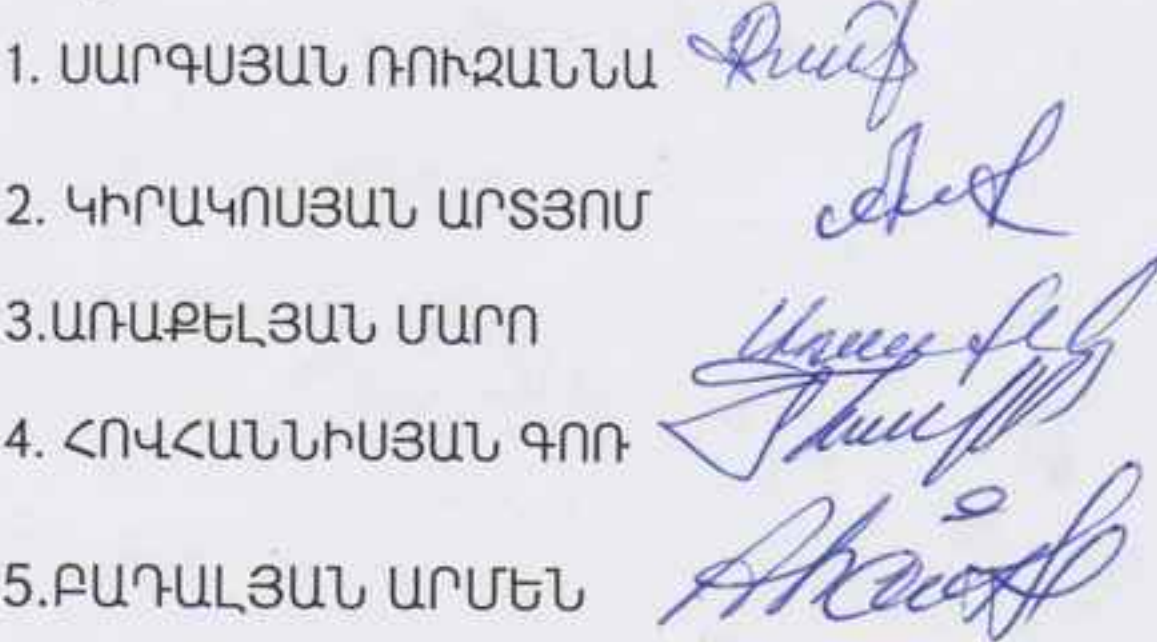 1. ՍԱՐԳՍՅԱՆ ՌՈՒԶԱՆՆԱ
2. ԿԻՐԱԿՈՍՅԱՆ ԱՐՏՅՈՄ
3.ԱՌԱՔԵԼՅԱՆ ՄԱՐՈ
4. ՀՈՎՀԱՆՆԻՍՅԱՆ ԳՈՌ
5.ԲԱԴԱԼՅԱՆ ԱՐՄԵՆ